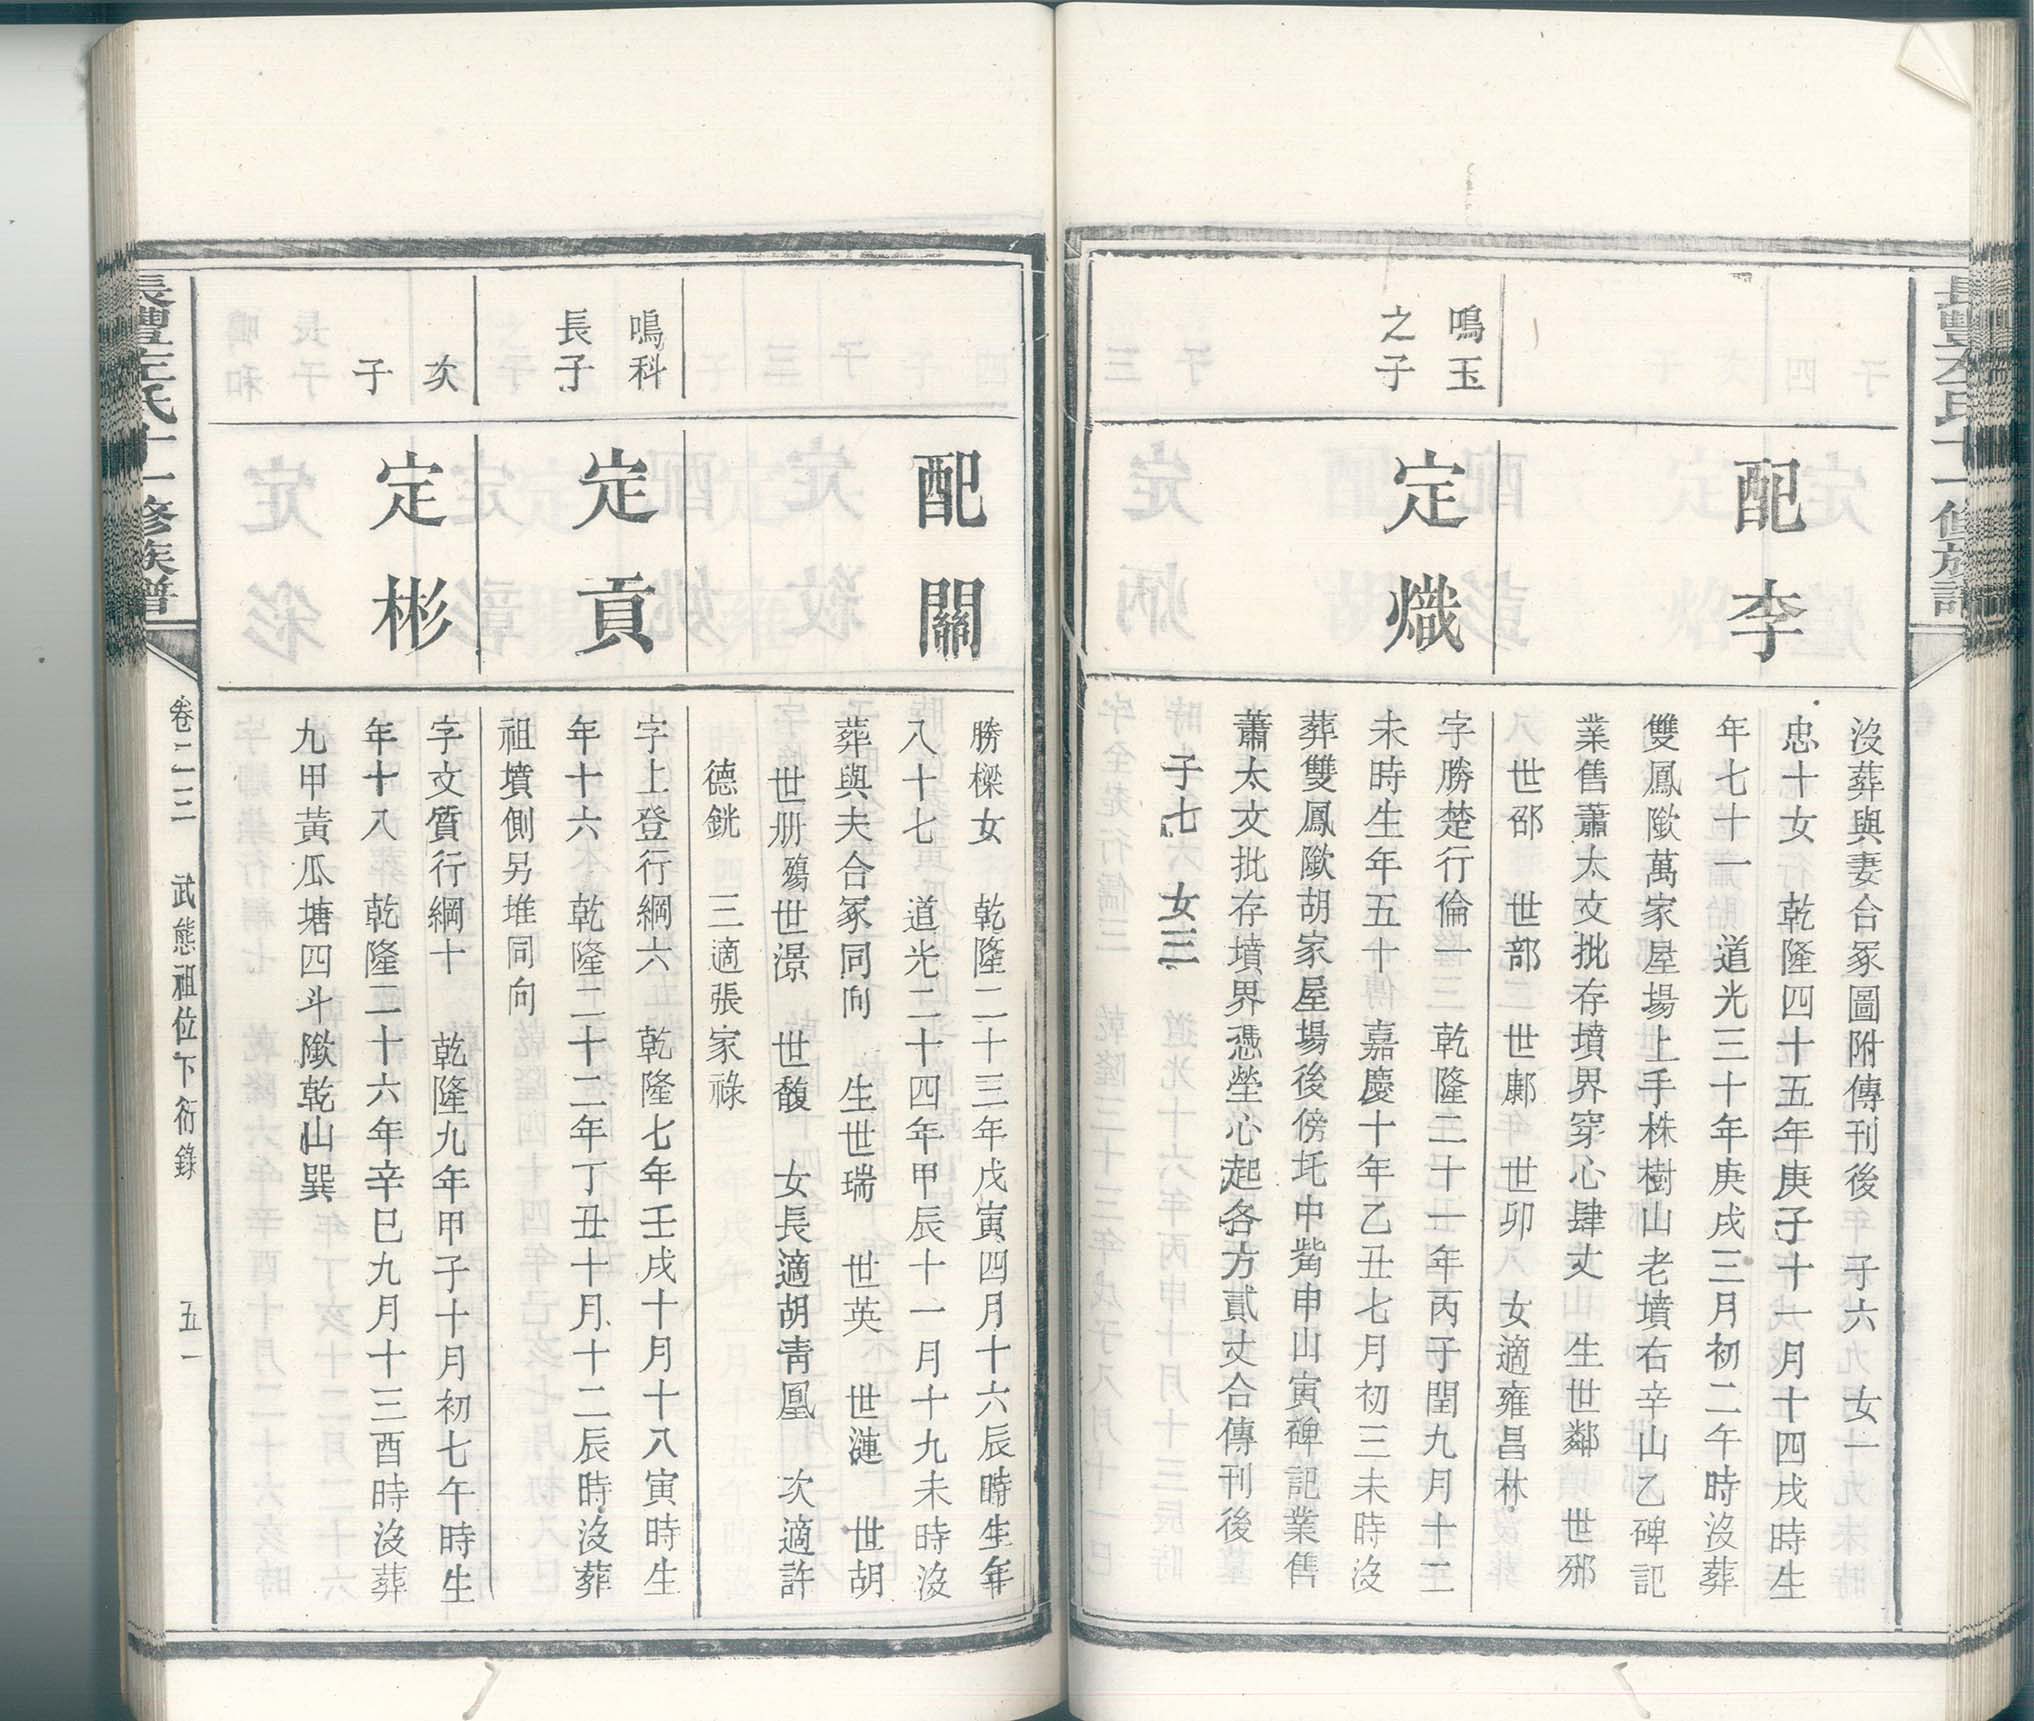 沒葬與妻合冢圖附傳刊後 子六 女一
配李
忠十女 乾隆四十五年庚子十一月十四戌時生
年七十一 道光三十年庚戌三月初二午時沒葬
雙鳳歘萬家屋場上手株樹山老墳右辛山乙碑記
業售蕭太文批存墳界穿心肆丈 生世鄰 世邠
世邵 世部 世鄺 世卯 女適雍昌林
鳴玉
之子
定熾
字勝楚行倫一 乾隆二十一年丙子閏九月十二
未時生年五十 嘉慶十年乙丑七月初三未時沒
葬雙鳳歘胡家屋場後傍圫中觜申山寅碑記業售
蕭太文批存墳界憑塋心起各方貳丈合傳刊後
子七 女三
配關
勝樑女 乾隆二十三年戊寅四月十六辰時生年
八十七 道光二十四年甲辰十一月十九未時沒
葬與夫合冢同向 生世瑞 世英 世漣 世胡
世册殤世澋 世馥 女長適胡青凰 次適許
德銧 三適張家祿
鳴科
長子
定貢
字上登行綱六 乾隆七年壬戌十月十八寅時生
年十六 乾隆二十二年丁丑十月十二辰時沒葬
祖墳側另堆同向
次
子
定彬
字文質行綱十 乾隆九年甲子十月初七午時生
年十八 乾隆二十六年辛巳九月十三酉時沒葬
九甲黃瓜塘四斗歘乾山巽
長豐左氏十一修族譜
卷二三 武態祖位下衍錄 五一